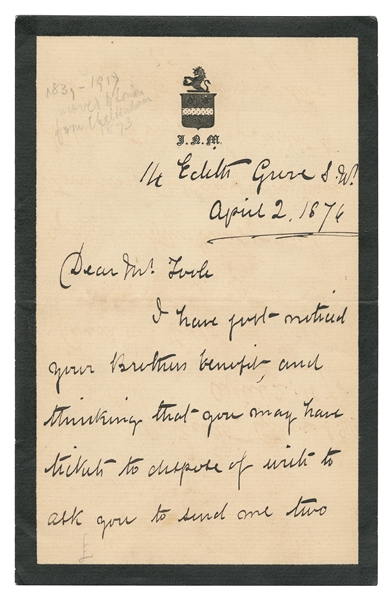 1839-1919
moves to London
from Cheltenham
1873
J.N.M.
14 Edith Grove S.W.
April 2, 1876
Dear Mr. Toole
I have just noticed
your Brothers benefit, and
thinking that you may have
tickets to dispose of write to
ask you to send me two
£